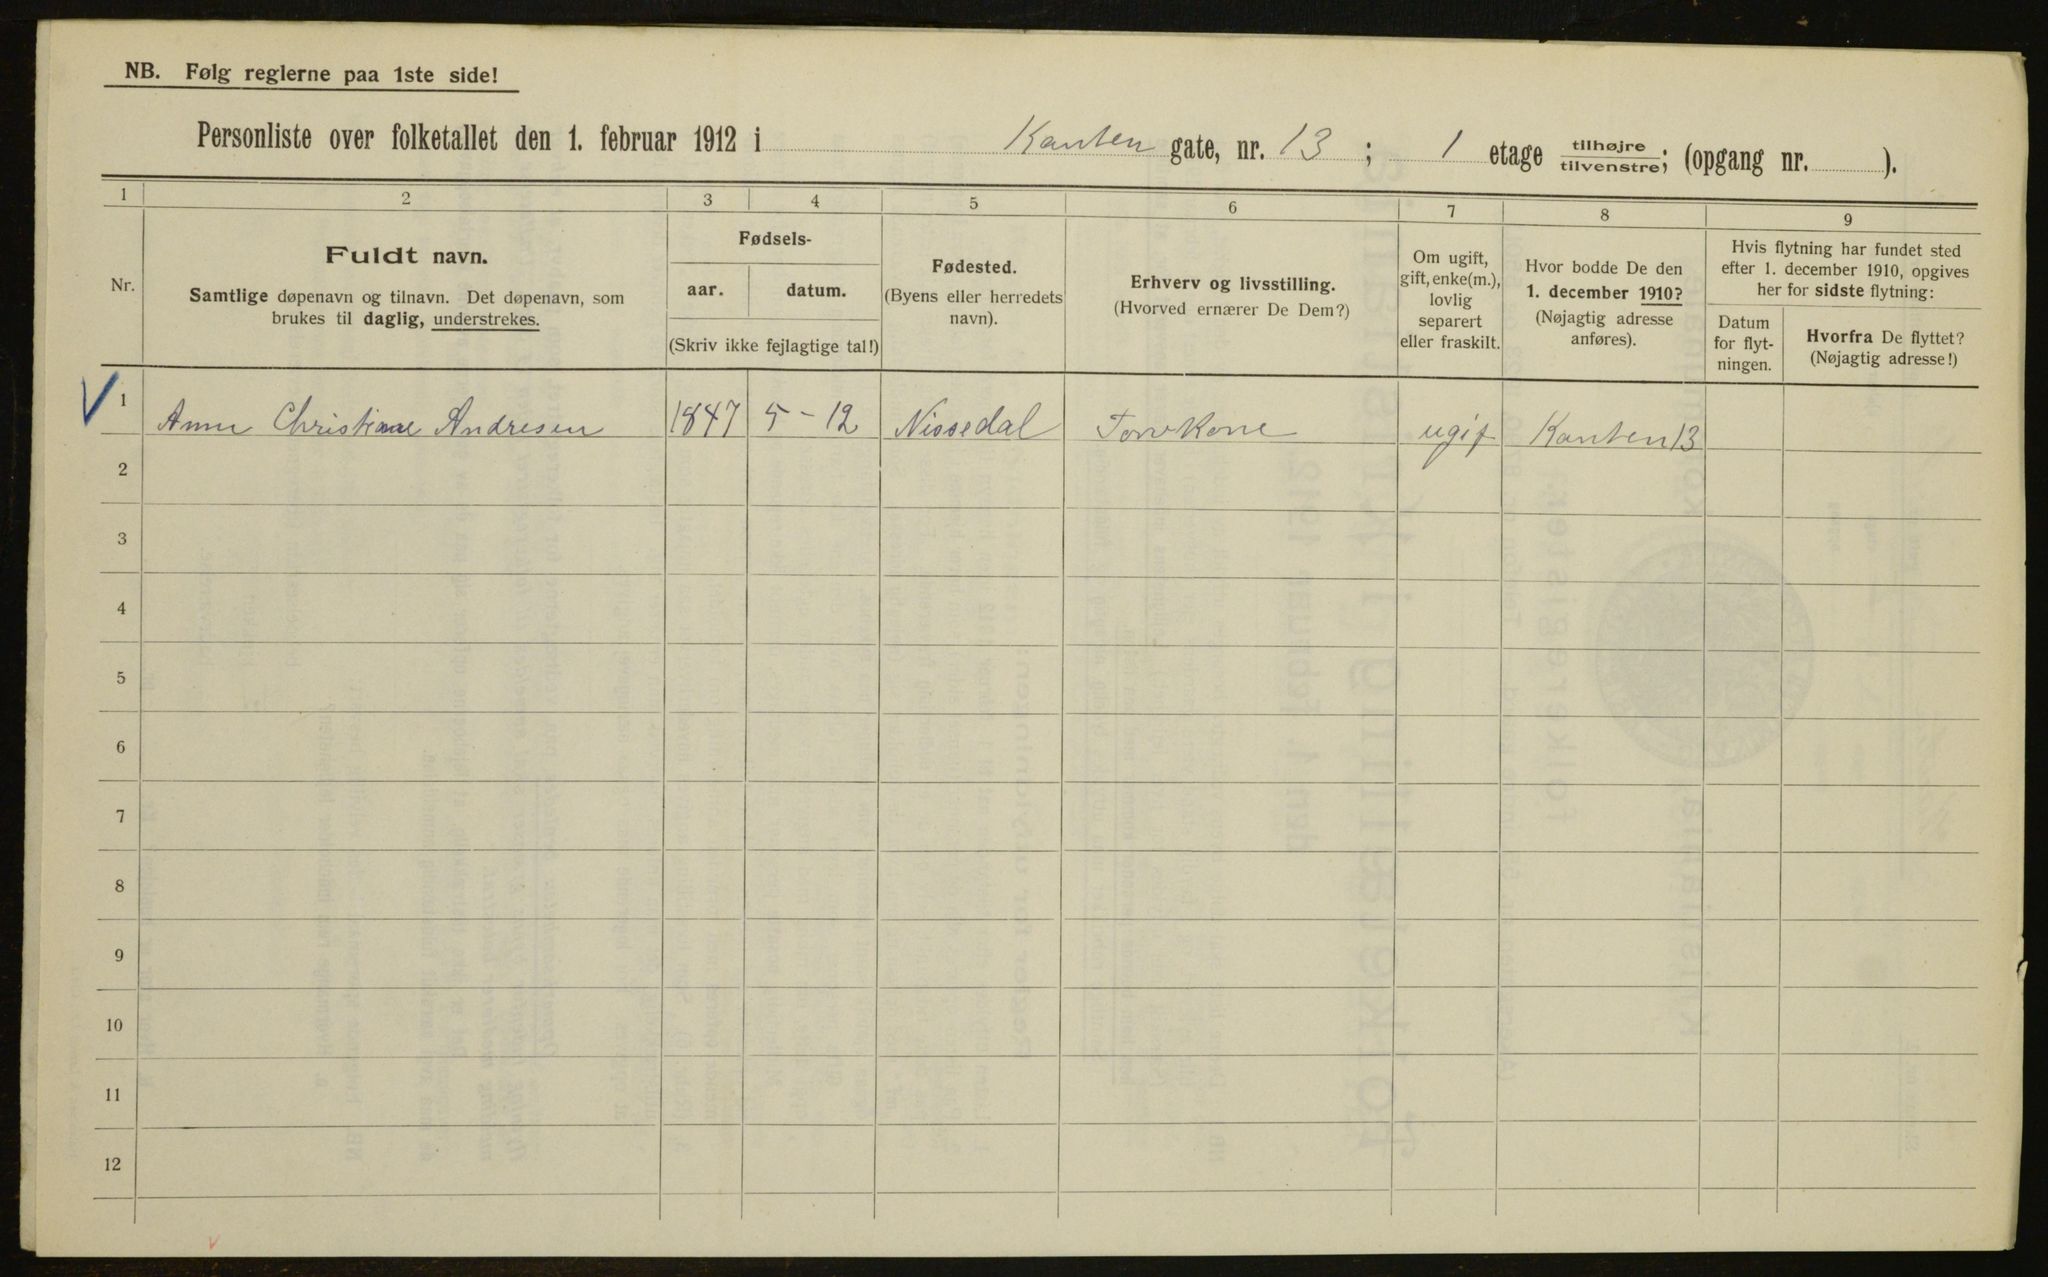 NB. Følg reglerne paa 1ste side!
Personliste over folketallet den 1. februar 1912 i Kanten gate, nr. 13 ; 1 etage tilhøjre/tilvenstre; (opgang nr. ).
1 2 3 4 5 6 7 8 9
Nr.
Fuldt navn.
Samtlige døpenavn og tilnavn. Det døpenavn, som
brukes til daglig, understrekes.
Fødsels-
aar. datum.
(Skriv ikke fejlagtige tal!)
Fødested.
(Byens eller herredets
navn).
Erhverv og livsstilling.
(Hvorved ernærer De Dem?)
Om ugift,
gift, enke(m.),
lovlig
separert
eller fraskilt.
Hvor bodde De den
1. december 1910?
(Nøjagtig adresse
anføres).
Hvis flytning har fundet sted
efter 1. december 1910, opgives
her for sidste flytning:
Datum
for flyt-
ningen.
Hvorfra De flyttet?
(Nøjagtig adresse!)
1 Christiane Andresen 1847 5-12 Nissedal Torvkone ugif Kanten 13
2
3
4
5
6
7
8
9
10
11
12